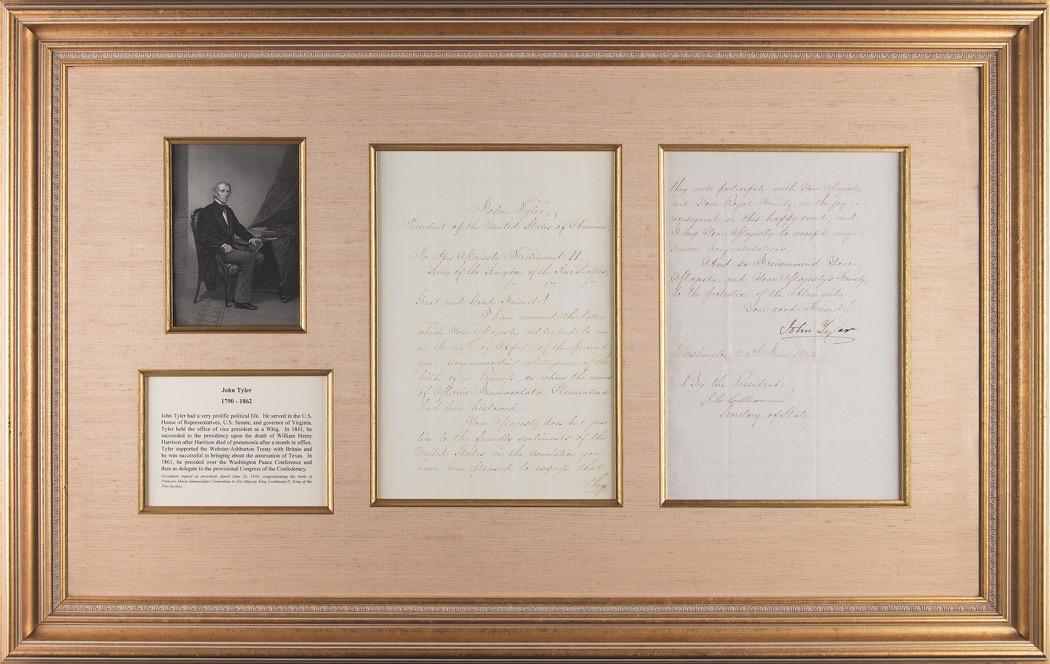 John Tyler
1790 - 1862
John Tyler had a very prolific political life. He served in the U.S.
House of Representatives, U.S. Senate, and governor of Virginia.
Tyler held the office of vice president as a Whig. In 1841, he
succeeded to the presidency upon the death of William Henry
Harrison after Harrison died of pneumonia after a month in office.
Tyler supported the Webster-Ashburton Treaty with Britain and
he was successful in bringing about the annexation of Texas. In
1861, he presided over the Washington Peace Conference and
then as delegate to the provisional Congress of the Confederacy.
Document signed as president dated June 24, 1844, congratulating the birth of
Princess Maria Immaculata Clementina to His Majesty King Ferdinand II, King of the
Two Sicilies.
John Tyler,
President of the United States of America,
To His Majesty Ferdinand II,
King of the Kingdom of the Two Sicilies,
Great and Good Friend!
I have received the letter
which Your Majesty addressed to me
on the 14th of April, of the present
year, communicating intelligence of the
birth of a Princess, on whom the names
of Maria Immacolata Clementina
had been bestowed.
Your Majesty does but jus-
tice to the friendly sentiments of the
United States in the conviction you
have been pleased to express, that
they
they will participate with Your Majesty,
and Your Royal Family, in the joy
consequent on this happy event, and
I beg Your Majesty to accept my
sincere congratulations.
And so I recommend Your
Majesty, and Your Majesty's Family
to the protection of the Almighty.
Your good Friend!
John Tyler
Washington, 24th June, 1844.
By the President,
J C Calhoun
Secretary of State.